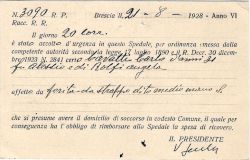 N. 3090 R. P. Brescia li, 21 - 8 - 1928 - Anno VI
Racc. R. R.
Il giorno 20 corr.
è stato accolto d'urgenza in questo Spedale, per ordinanza emessa dalla
competente autorità secondo la legge 17 luglio 1890 e R. Decr. 30 di-
cembre 1923 N. 2841 certo Cavalli Carlo d'anni 21
fu Alessio e di Rolfi Angela
affetto da ferita da strappo dito medio mano S.
che si presume avere il domicilio di soccorso in codesto Comune, il quale per
conseguenza ha l'obbligo di rimborsare allo Spedale la spesa di ricovero.
IL PRESIDENTE